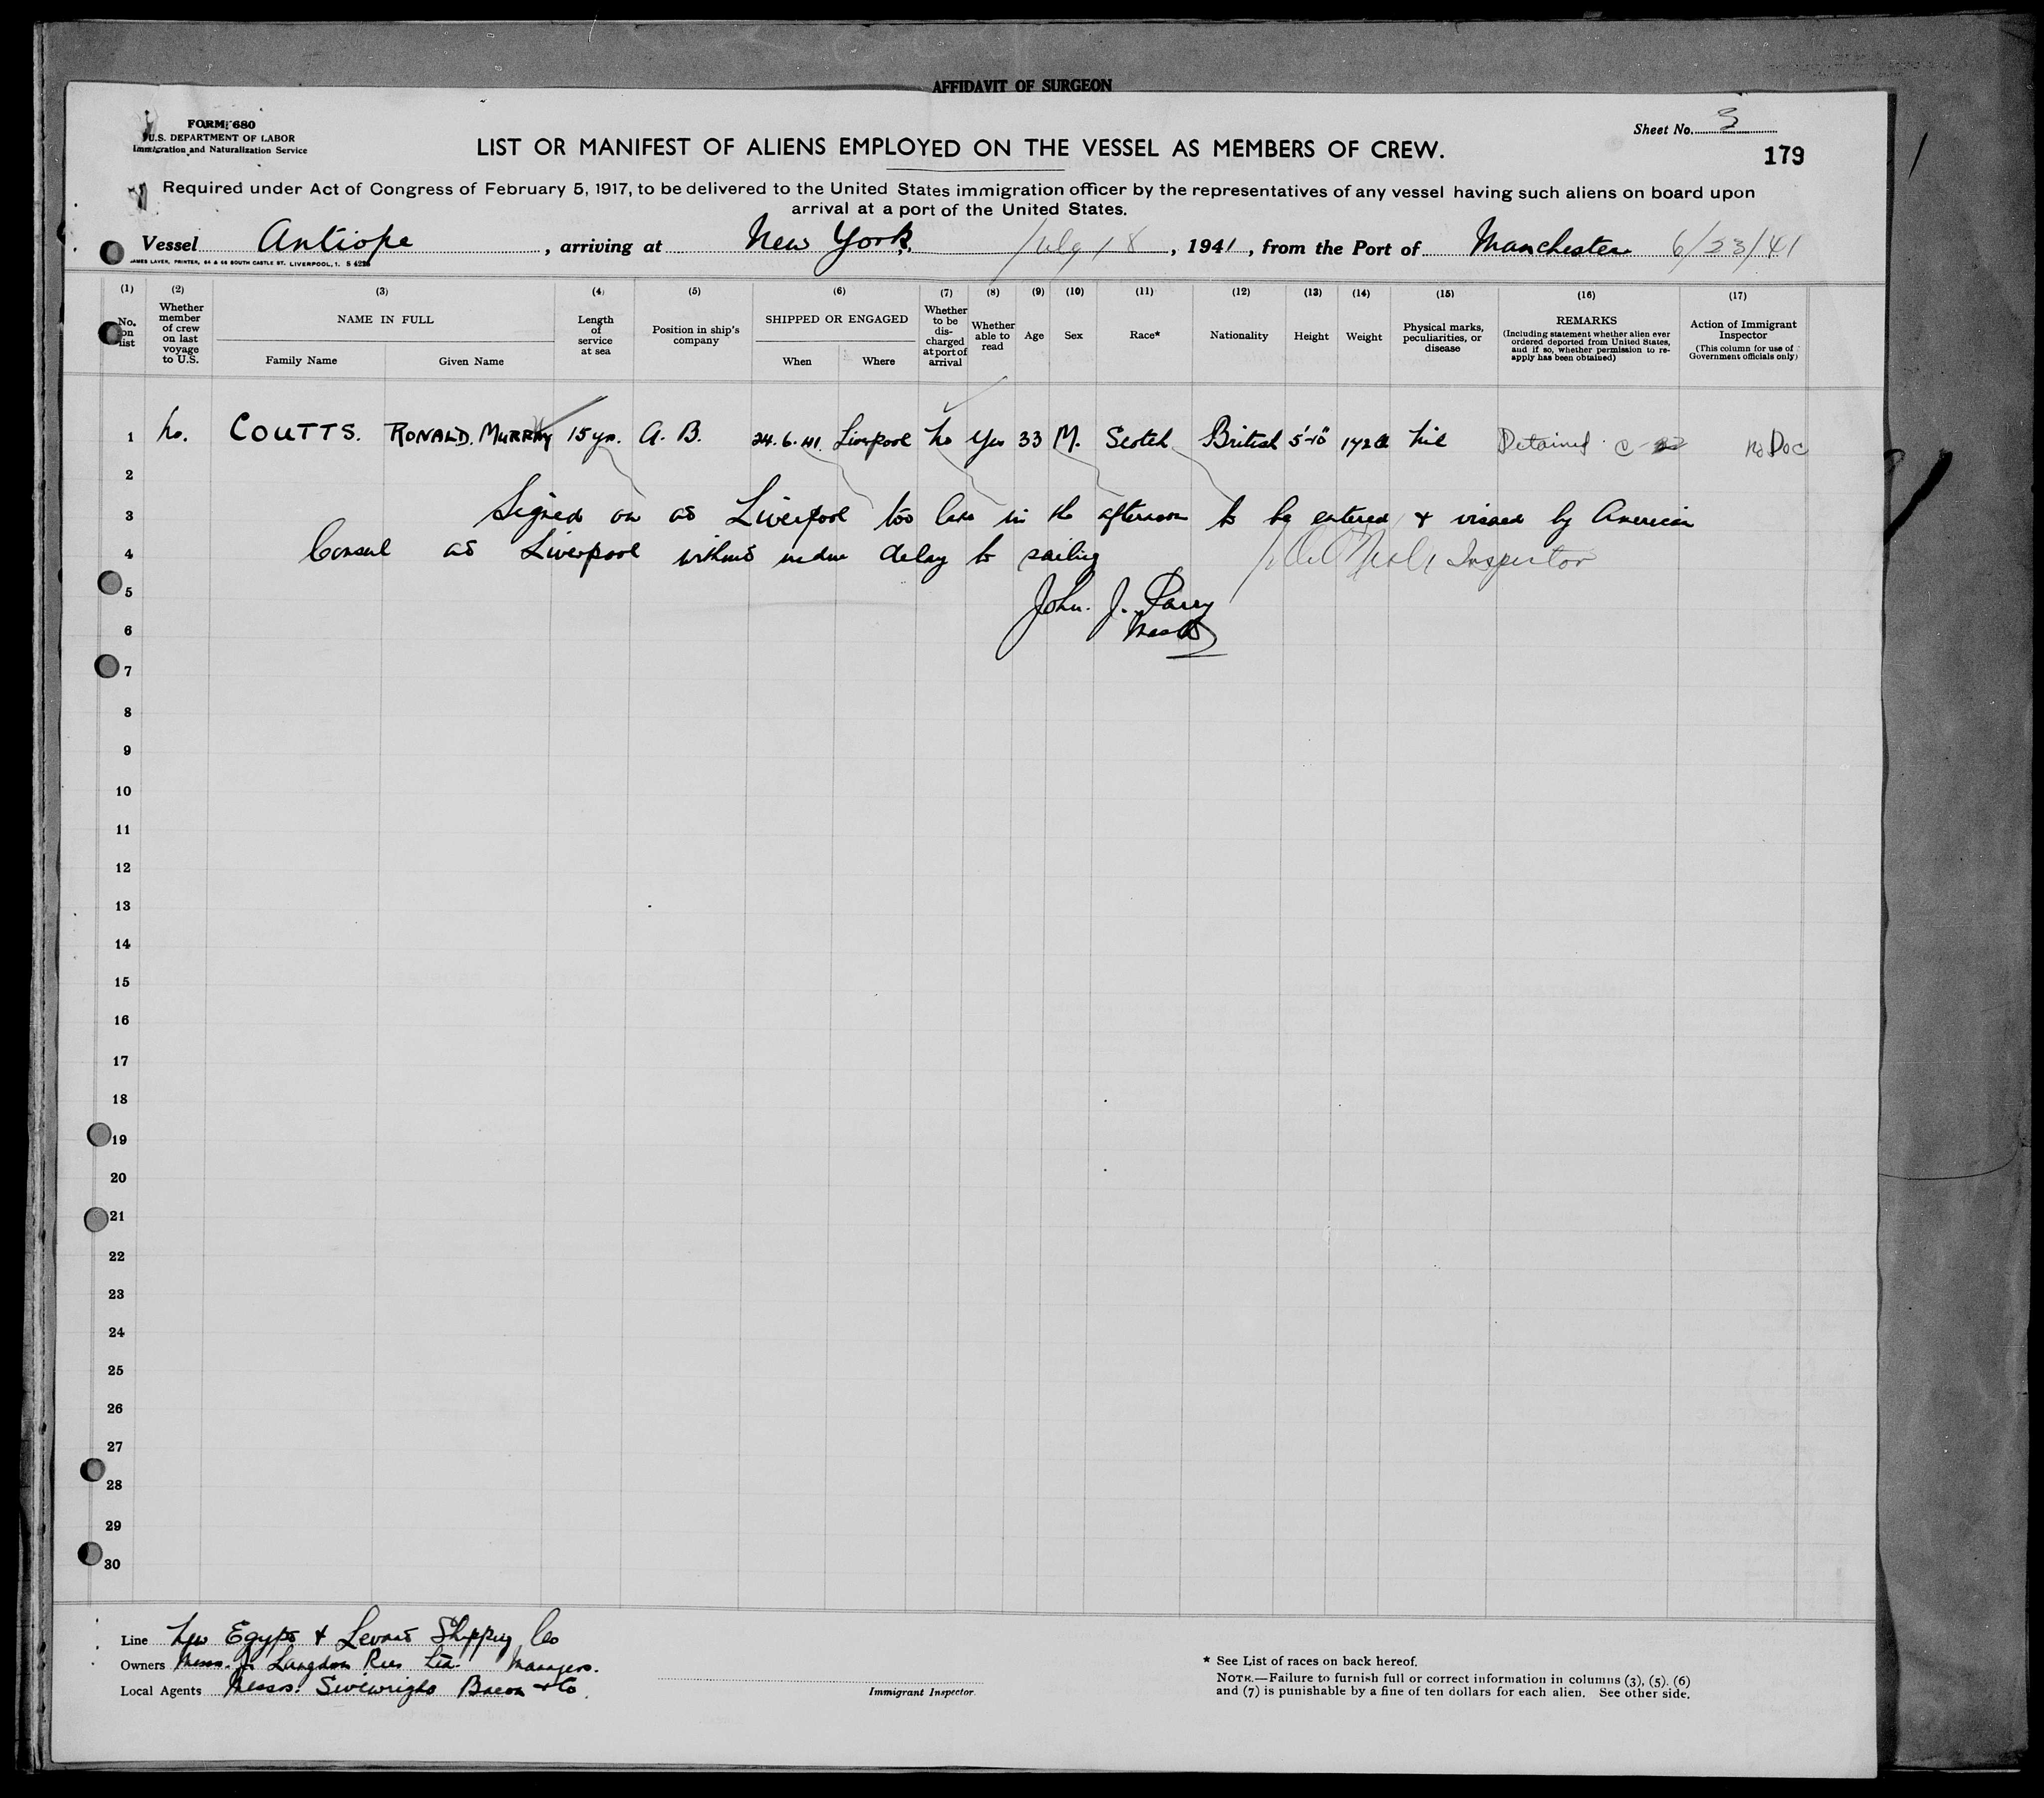 AFFIDAVIT OF SURGEON
FORM 680
U.S. DEPARTMENT OF LABOR
Immigration and Naturalization Service
Sheet No. 3
179
LIST OR MANIFEST OF ALIENS EMPLOYED ON THE VESSEL AS MEMBERS OF CREW.
Required under Act of Congress of February 5, 1917, to be delivered to the United States immigration officer by the representatives of any vessel having such aliens on board upon
arrival at a port of the United States.
Vessel Antiope, arriving at New York, July 18, 1941, from the Port of Manchester 6/23/41
JAMES LAVER, PRINTER, 64 & 66 SOUTH CASTLE ST. LIVERPOOL, 1.
(1) No. on list
(2) Whether member of crew on last voyage to U.S.
(3) NAME IN FULL Family Name Given Name
(4) Length of service at sea
(5) Position in ship's company
(6) SHIPPED OR ENGAGED When Where
(7) Whether to be discharged at port of arrival
(8) Whether able to read
(9) Age
(10) Sex
(11) Race*
(12) Nationality
(13) Height
(14) Weight
(15) Physical marks, peculiarities, or disease
(16) REMARKS (Including statement whether alien ever ordered deported from United States, and if so, whether permission to re-apply has been obtained)
(17) Action of Immigrant Inspector (This column for use of Government officials only)
1 No. COUTTS. RONALD. MURRAY 15 yrs. A. B. 24.6.41 Liverpool No Yes 33 M. Scotch British 5'-10" 172 lb Nil Detained No Doc
2
3 Signed on at Liverpool too late in the afternoon to be entered & visaed by American
4 Consul at Liverpool without undue delay to sailing Inspector
5 John. J. Parry
6 Master
7
8
9
10
11
12
13
14
15
16
17
18
19
20
21
22
23
24
25
26
27
28
29
30
Line New Egypt & Levant Shipping Co
Owners Messrs. J. Langdon Rees Ltd. Managers.
Local Agents Messrs. Sivewright Bacon & Co.
Immigrant Inspector.
* See List of races on back hereof.
NOTE.—Failure to furnish full or correct information in columns (3), (5), (6)
and (7) is punishable by a fine of ten dollars for each alien. See other side.